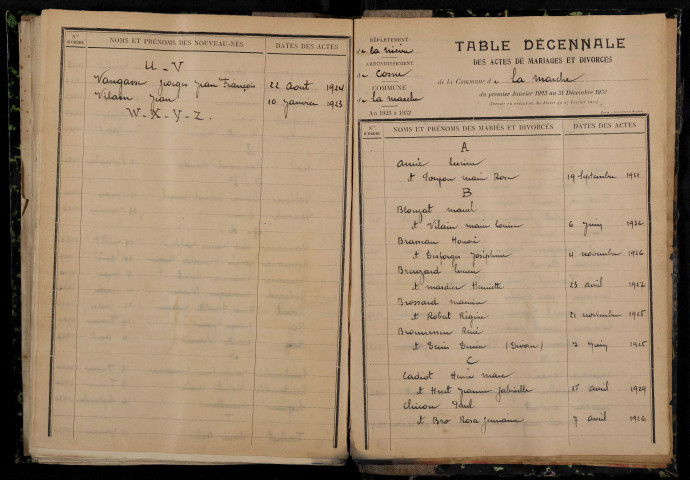 Nos D'ORDRE
NOMS ET PRÉNOMS DES NOUVEAU-NÉS
DATES DES ACTES
U - V
Vangasse Georges Jean François 22 Août 1924
Vilain Jean 10 Janvier 1923
W - X - Y - Z.
DÉPARTEMENT
de la Nièvre
ARRONDISSEMENT
de Cosne
COMMUNE
de la Marche
An 1923 à 1932
TABLE DÉCENNALE
DES ACTES DE MARIAGES ET DIVORCES
de la Commune de La Marche
du premier Janvier 1923 au 31 Décembre 1932
Nos D'ORDRE
NOMS ET PRÉNOMS DES MARIÉS ET DIVORCÉS
DATES DES ACTES
A
Lucien
et Marie Rose 19 Septembre 1931
B
Marcel
et Vilain Marie 6 Juin
Honoré
et Desforges Joséphine 4 novembre 1926
Lucien
et Mardier Henriette 23 avril 1927
Brossard Maurice
et Robert Régine 21 novembre 1925
René
et Denis (Divorce) 3 Juin 1925
C
Cadiot Henri Marc
et Huet Jeanne Gabrielle 15 avril 1929
Chicon Paul
et Bro Rosa Germaine 7 avril 1926